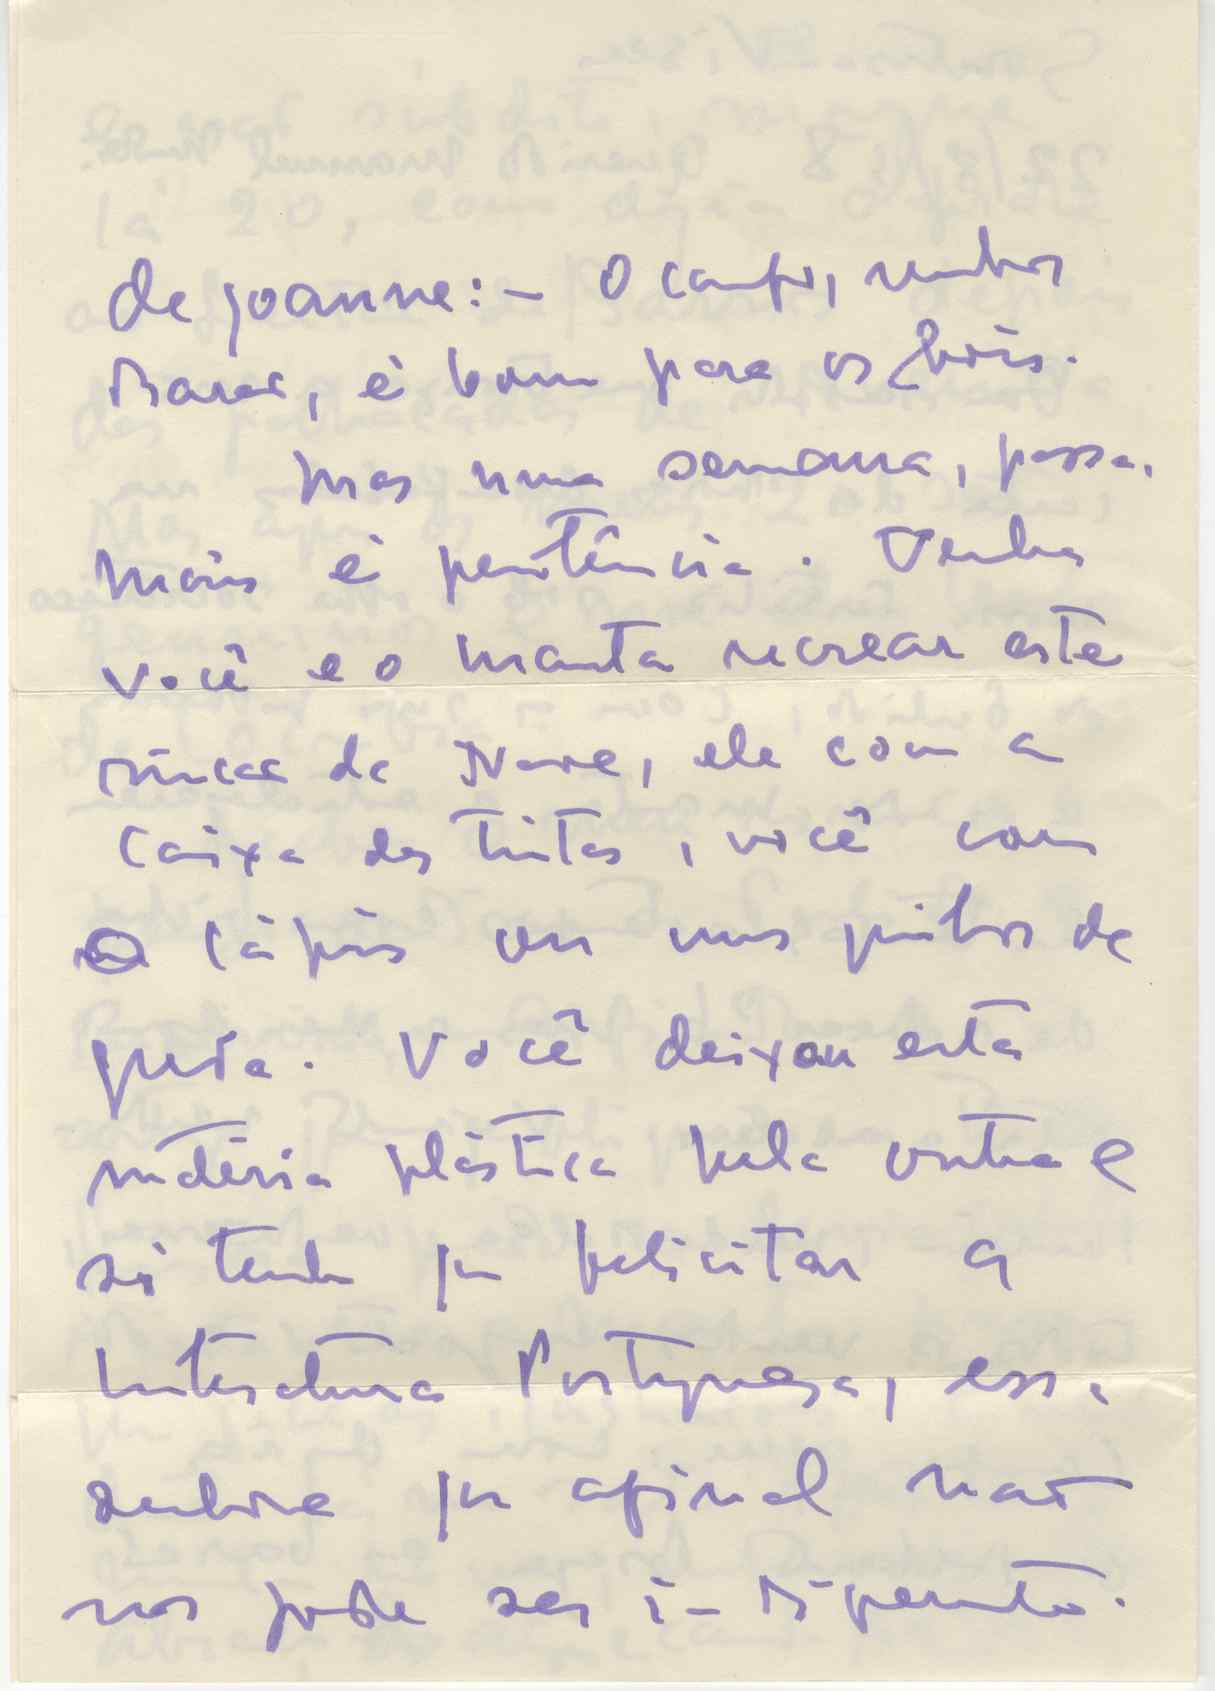 de Joanne: - O campo, senhor
Barão, é bom para os bois.
Mas uma semana, passa.
Mais é penitência. Venha
você e o Manta recrear este
de Nave, ele com a
caixa das tintas, você com
o lápis ou uns pilhos de
greda. Você deixou esta
matéria plástica pela outra e
só tenho que felicitar a
Literatura Portuguesa, essa
senhora que afinal não
nos pode ser indiferente.